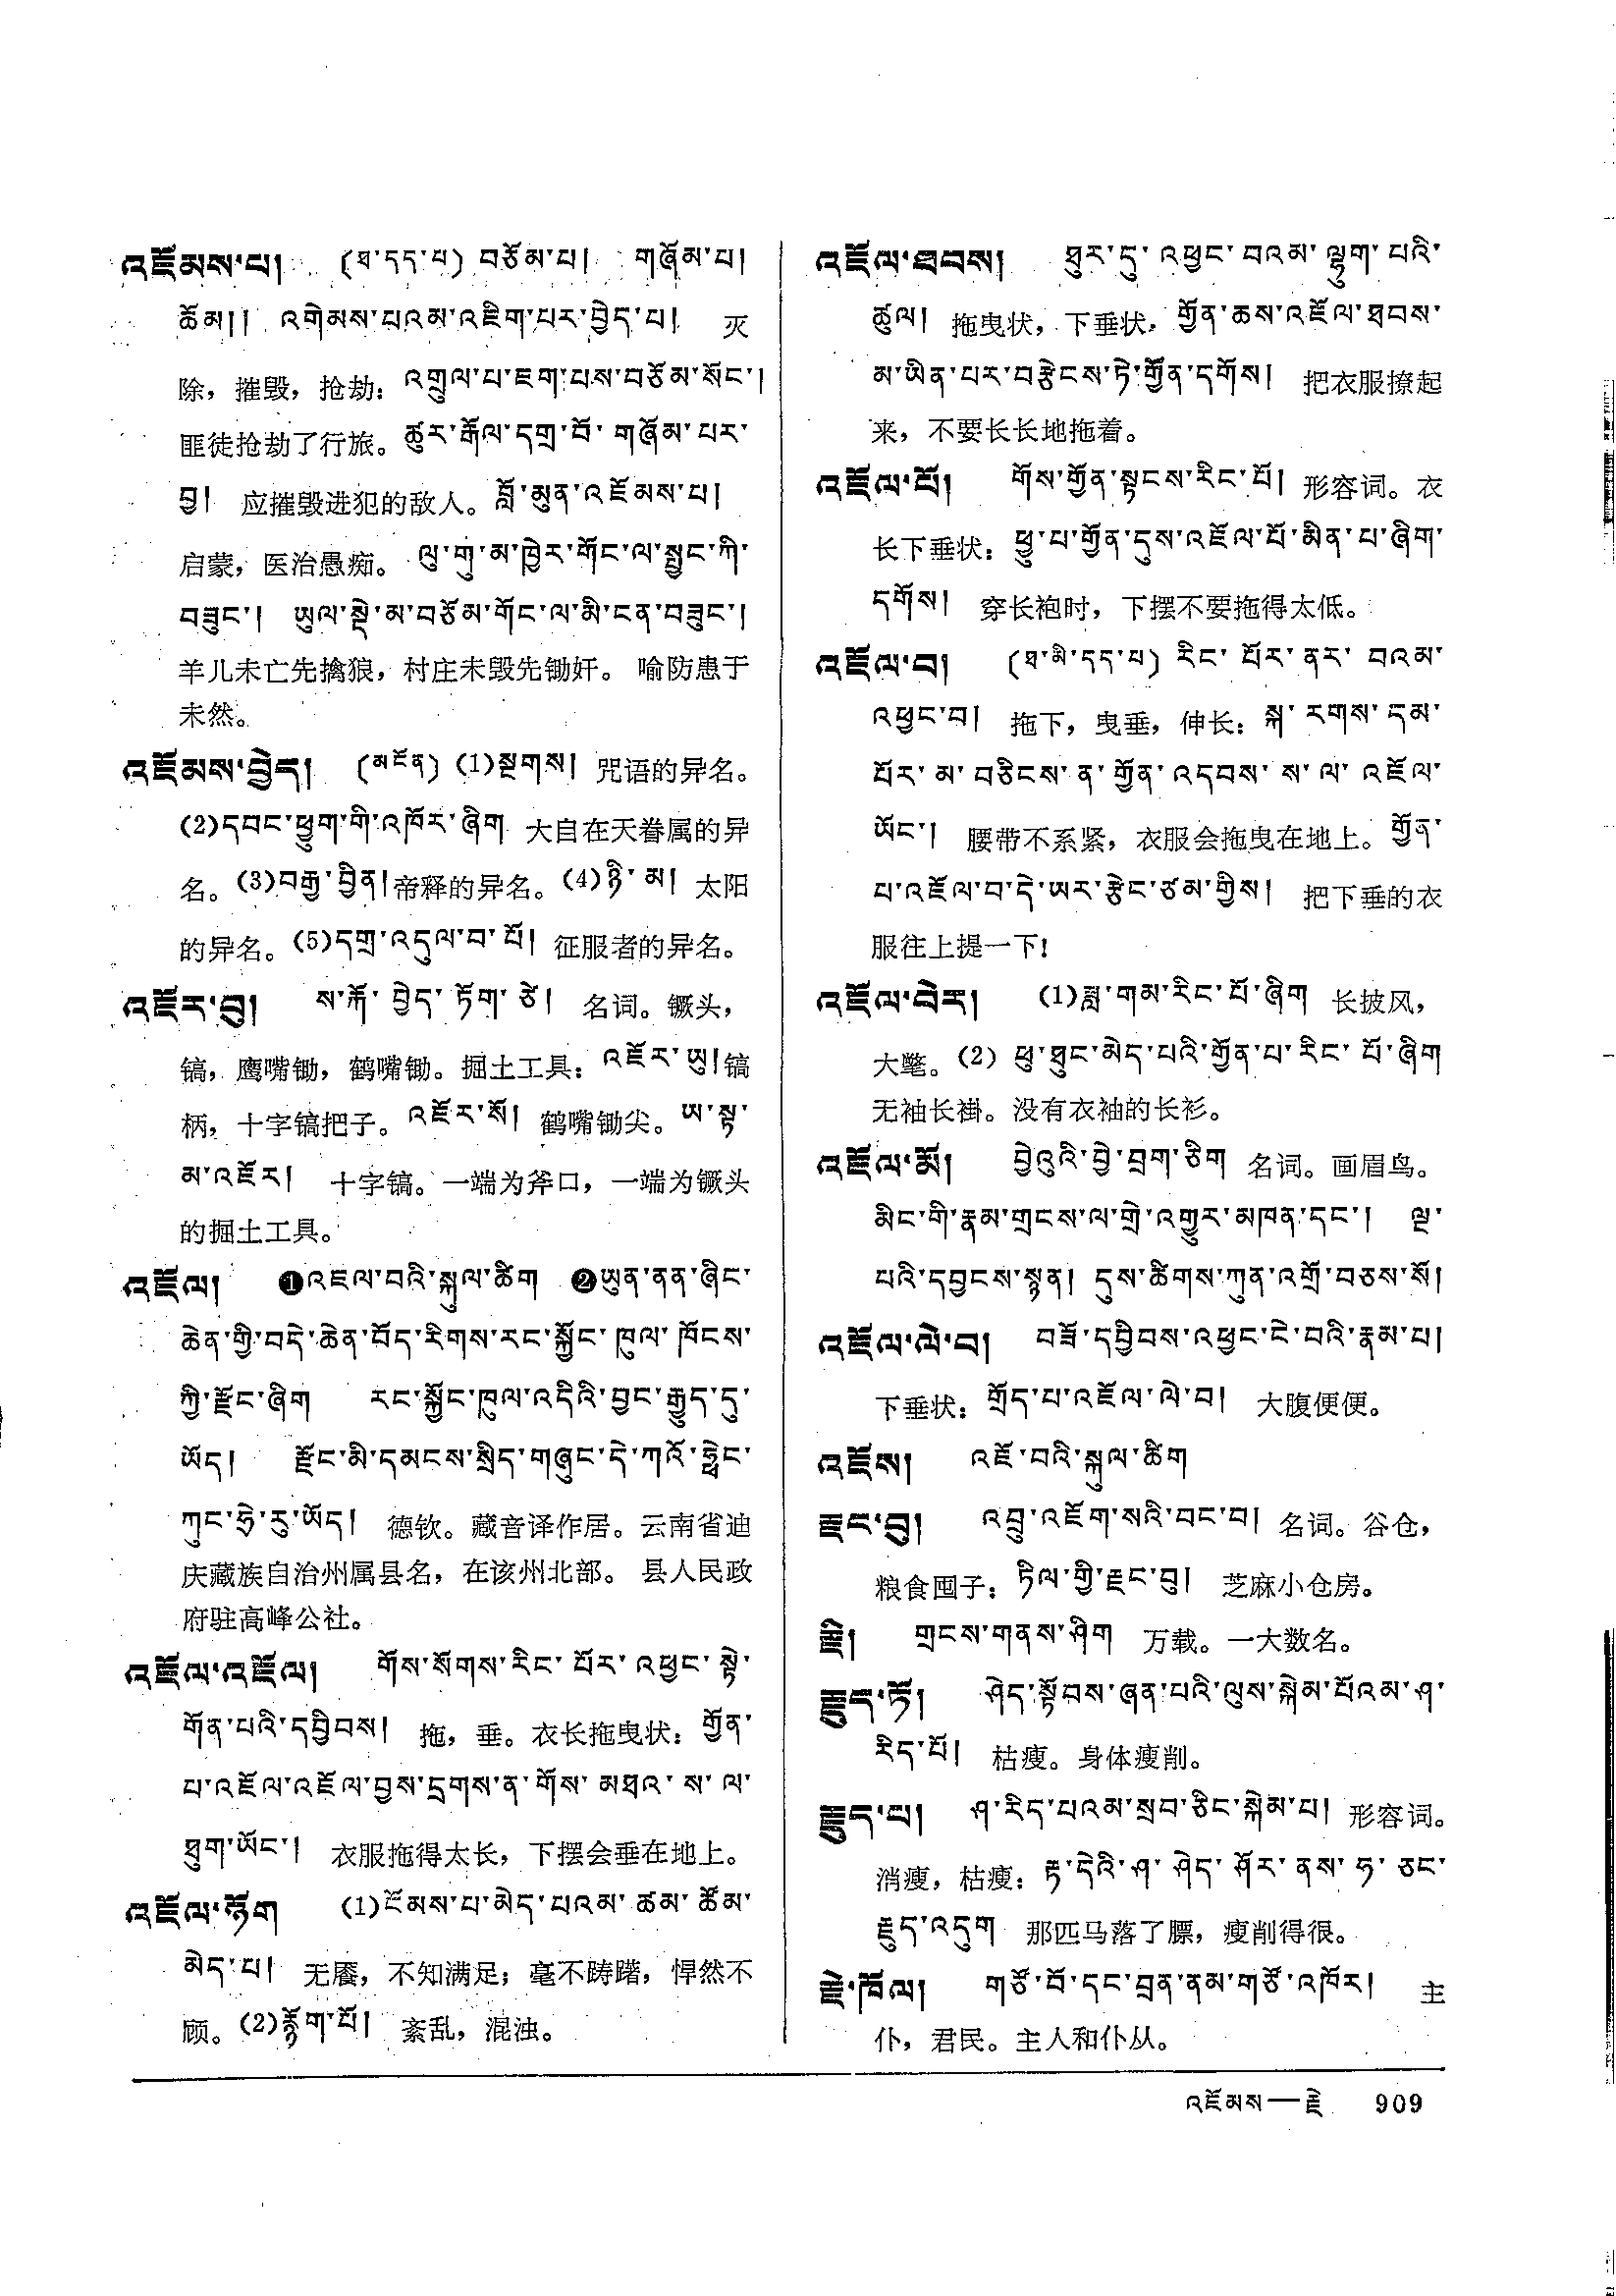 འཇོམས་པ། (ཐ་དད་པ) བཅོམ་པ། གཞོམ་པ།
ཆོམ།། འགེམས་པའམ་འཇིག་པར་བྱེད་པ། 灭
除，摧毁，抢劫：འགྲུལ་པ་ཇག་པས་བཅོམ་སོང་།
匪徒抢劫了行旅。ཚུར་རྒོལ་དགྲ་བོ་ གཞོམ་པར་
བྱ། 应摧毁进犯的敌人。བློ་མུན་འཇོམས་པ།
启蒙，医治愚痴。ལུ་གུ་མ་ཁྱེར་གོང་ལ་སྤྱང་ཀི་
བཟུང་། ཡུལ་སྡེ་མ་བཅོམ་གོང་ལ་མི་ངན་བཟུང་།
羊儿未亡先擒狼，村庄未毁先锄奸。喻防患于
未然。
འཇོམས་བྱེད། (མངོན) (1)སྔགས། 咒语的异名。
(2)དབང་ཕྱུག་གི་འཁོར་ཞིག 大自在天眷属的异
名。(3)བརྒྱ་བྱིན།帝释的异名。(4)ཉི་མ། 太阳
的异名。(5)དགྲ་འདུལ་བ་པོ། 征服者的异名。
འཇོར་བུ། ས་རྐོ་བྱེད་ཏོག་ཙེ། 名词。镢头，
镐，鹰嘴锄，鹤嘴锄。掘土工具：འཇོར་ཡུ།镐
柄，十字镐把子。འཇོར་སོ། 鹤嘴锄尖。ཨ་སྟ་
མ་འཇོར། 十字镐。一端为斧口，一端为镢头
的掘土工具。
འཇོལ། ❶འཇལ་བའི་སྐུལ་ཚིག ❷ཡུན་ནན་ཞིང་
ཆེན་གྱི་བདེ་ཆེན་བོད་རིགས་རང་སྐྱོང་ཁུལ་ཁོངས་
ཀྱི་རྫོང་ཞིག རང་སྐྱོང་ཁུལ་འདིའི་བྱང་རྒྱུད་དུ་
ཡོད། རྫོང་མི་དམངས་སྲིད་གཞུང་དེ་ཀའོ་ཧྥེང་
ཀུང་ཧྲེ་རུ་ཡོད། 德钦。藏音译作居。云南省迪
庆藏族自治州属县名，在该州北部。县人民政
府驻高峰公社。
འཇོལ་འཇོལ། གོས་སོགས་རིང་པོར་འཕྱང་སྟེ་
གོན་པའི་དབྱིབས། 拖，垂。衣长拖曳状：གྱོན་
པ་འཇོལ་འཇོལ་བྱས་དྲགས་ན་གོས་མཐའ་ས་ལ་
ཐུག་ཡོང་། 衣服拖得太长，下摆会垂在地上。
འཇོལ་ཉོག (1)ངོམས་པ་མེད་པའམ་ཚམ་ཚོམ་
མེད་པ། 无餍，不知满足；毫不踌躇，悍然不
顾。(2)རྙོག་པོ། 紊乱，混浊。
འཇོལ་ཐབས། ཐུར་དུ་འཕྱང་བའམ་ལྷུག་པའི་
ཚུལ། 拖曳状，下垂状，གྱོན་ཆས་འཇོལ་ཐབས་
མ་ཡིན་པར་བརྩེངས་ཏེ་གྱོན་དགོས། 把衣服撩起
来，不要长长地拖着。
འཇོལ་པོ། གོས་གྱོན་སྟངས་རིང་པོ། 形容词。衣
长下垂状：ཕྱུ་པ་གྱོན་དུས་འཇོལ་པོ་མིན་པ་ཞིག་
དགོས། 穿长袍时，下摆不要拖得太低。
འཇོལ་བ། (ཐ་མི་དད་པ) རིང་པོར་ནར་བའམ་
འཕྱང་བ། 拖下，曳垂，伸长：སྐ་རགས་དམ་
པོར་མ་བཅིངས་ན་གྱོན་འདབས་ས་ལ་འཇོལ་
ཡོང་། 腰带不系紧，衣服会拖曳在地上。གྱོན་
པ་འཇོལ་བ་དེ་ཡར་རྩེང་ཙམ་གྱིས། 把下垂的衣
服往上提一下！
འཇོལ་བེར། (1)ཟླ་གམ་རིང་པོ་ཞིག 长披风，
大氅。(2) ཕུ་ཐུང་མེད་པའི་གྱོན་པ་རིང་པོ་ཞིག
无袖长褂。没有衣袖的长衫。
འཇོལ་མོ། བྱེའུའི་བྱེ་བྲག་ཅིག 名词。画眉鸟。
མིང་གི་རྣམ་གྲངས་ལ་གྲེ་འགྱུར་མཁན་དང་། ལྔ་
པའི་དབྱངས་སྙན། དུས་ཚིགས་ཀུན་འགྲོ་བཅས་སོ།
འཇོལ་ལེ་བ། བཟོ་དབྱིབས་འཕྱང་ངེ་བའི་རྣམ་པ།
下垂状：གྲོད་པ་འཇོལ་ལེ་བ། 大腹便便。
འཇོས། འཇོ་བའི་སྐུལ་ཚིག
རྫང་བུ། འབྲུ་འཇོག་སའི་བང་བ། 名词。谷仓，
粮食囤子：ཏིལ་གྱི་རྫང་བུ། 芝麻小仓房。
གྲངས་གནས་ཤིག 万载。一大数名。
ཤེད་སྟོབས་ཞན་པའི་ལུས་སྐེམ་པོའམ་ཤ་
རིད་པོ། 枯瘦。身体瘦削。
ཤ་རིད་པའམ་སྲབ་ཅིང་སྐེམ་པ། 形容词。
消瘦，枯瘦：རྟ་དེའི་ཤ་ཤེད་ཤོར་ནས་ཧ་ཅང་
རྗུད་འདུག 那匹马落了膘，瘦削得很。
རྗེ་ཁོལ། གཙོ་བོ་དང་བྲན་ནམ་གཙོ་འཁོར། 主
仆，君民。主人和仆从。
འཇོམས—རྗེ 909